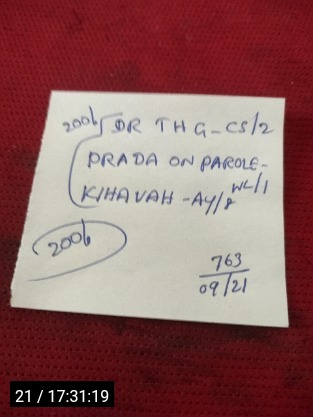 2006 DR THG - CS/2
PRADA ON PAROLE -
WL/1
KIHAVAH - AY/8
2006
763
09/21
21 / 17:31:19